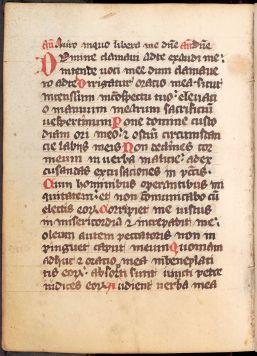 libera me dne an dne
Domine clamavi ad te exaudi me:
intende voci mee dum clamave
ro ad te Dirigatur oratio mea sicut
incensum in conspectu tuo: elevatio
manuum mearum sacrificiu
vespertinum Pone domine custo
diam ori meo: et ostiu circumstan
cie labiis meis Non declines cor
meum in verba malicie: ad ex
cusandas excusationes in pctis.
Cum hominibus operantibus ini
quitatem: et non comunicabo cu
electis eor Corripiet me iustus
in misericordia et increpabit me:
oleum autem peccatoris non in
pinguet caput meum Quoniam
adhuc et oratio mea in beneplaci
tis eor: absorti sunt iuncti petre
iudices eor Audient verba mea